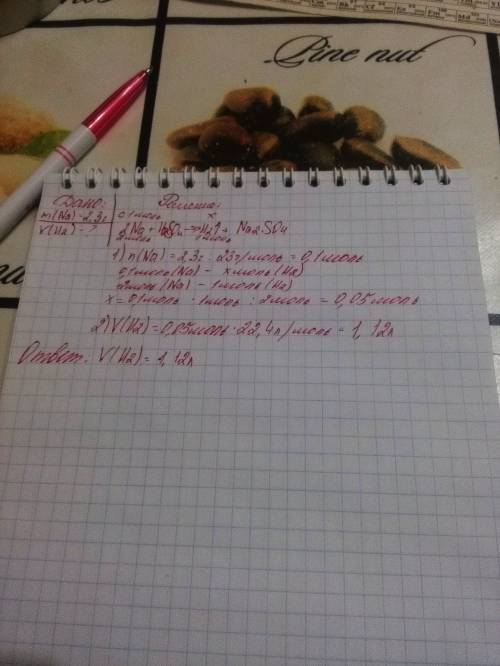 Pine nut
Дано: Решение:
m(Na) = 2,3г 0,1 моль x
V(H2) - ? 2Na + H2SO4 → H2↑ + Na2SO4
2моль 1моль
1) n(Na) = 2,3г : 23г/моль = 0,1моль
0,1моль(Na) - x моль(H2)
2моль(Na) - 1моль(H2)
x = 0,1моль · 1моль : 2моль = 0,05моль
2) V(H2) = 0,05моль · 22,4л/моль = 1,12л
Ответ: V(H2) = 1,12л